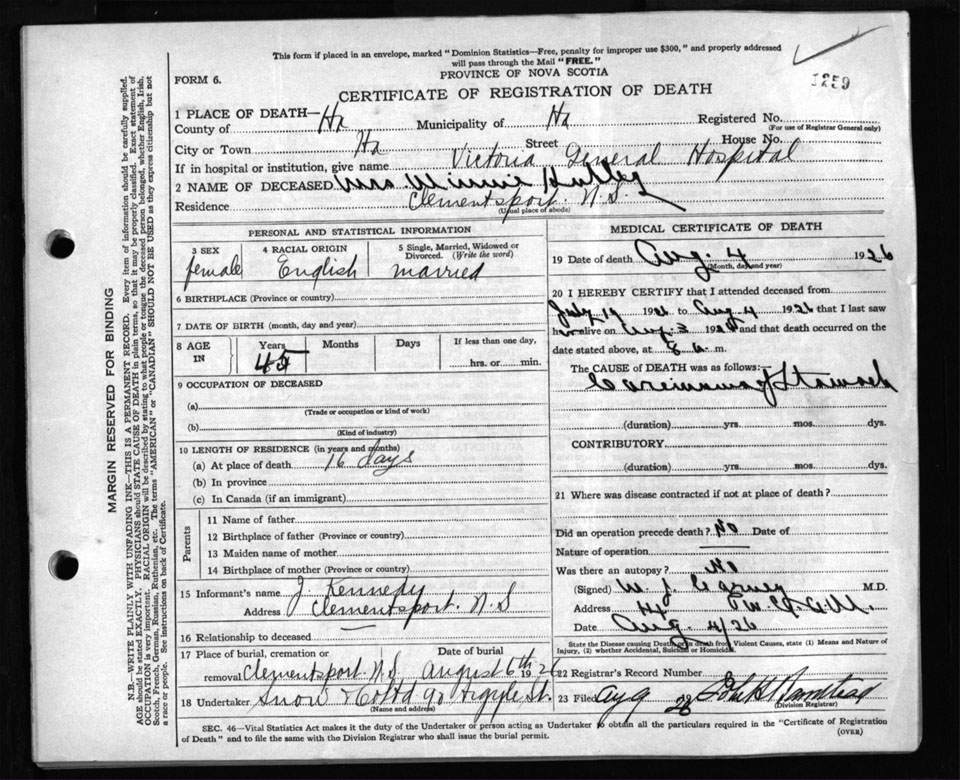 This form if placed in an envelope, marked "Dominion Statistics—Free, penalty for improper use $300," and properly addressed
will pass through the Mail "FREE."
PROVINCE OF NOVA SCOTIA
1259
FORM 6.
CERTIFICATE OF REGISTRATION OF DEATH
1 PLACE OF DEATH—
County of Hx Municipality of Hx Registered No.
(For use of Registrar General only)
City or Town Hx Street House No.
If in hospital or institution, give name Victoria General Hospital
2 NAME OF DECEASED Mrs Winnie
Residence Clementsport. N.S.
(Usual place of abode)
PERSONAL AND STATISTICAL INFORMATION
3 SEX 4 RACIAL ORIGIN 5 Single, Married, Widowed or Divorced. (Write the word)
female English married
6 BIRTHPLACE (Province or country)
7 DATE OF BIRTH (month, day and year)
8 AGE IN Years Months Days If less than one day,
45 hrs. or min.
9 OCCUPATION OF DECEASED
(a)
(Trade or occupation or kind of work)
(b)
(Kind of industry)
10 LENGTH OF RESIDENCE (in years and months)
(a) At place of death 16 days
(b) In province
(c) In Canada (if an immigrant)
Parents
11 Name of father
12 Birthplace of father (Province or country)
13 Maiden name of mother
14 Birthplace of mother (Province or country)
15 Informant's name J. Kennedy
Address Clementsport. N.S
16 Relationship to deceased —
17 Place of burial, cremation or Date of burial
removal Clementsport N.S August 6th 1926
18 Undertaker Snow & Co Ltd 90 Argyle St.
(Name and address)
MEDICAL CERTIFICATE OF DEATH
19 Date of death Aug. 4 1926
(Month, day and year)
20 I HEREBY CERTIFY that I attended deceased from
July 19 1926 to Aug 4 1926 that I last saw
her alive on Aug 3 1926 and that death occurred on
date stated above, at 8 a. m.
The CAUSE OF DEATH was as follows:
Carcinoma of Stomach
(duration) yrs. mos. dys.
CONTRIBUTORY
(duration) yrs. mos. dys.
21 Where was disease contracted if not at place of death?
Did an operation precede death? No Date of
Nature of operation —
Was there an autopsy? No
(Signed) W. J. M.D.
Address Hx
Date Aug. 4/26
State the Disease causing Death, or in death from Violent Causes, state (1) Means and Nature of
Injury, (2) whether Accidental, Suicidal or Homicidal.
22 Registrar's Record Number
23 Filed Aug
(Division Registrar)
SEC. 46—Vital Statistics Act makes it the duty of the Undertaker or person acting as Undertaker to obtain all the particulars required in the "Certificate of Registration
of Death" and to file the same with the Division Registrar who shall issue the burial permit.
(OVER)
MARGIN RESERVED FOR BINDING
N.B.—WRITE PLAINLY WITH UNFADING INK—THIS IS A PERMANENT RECORD. Every item of information should be carefully supplied.
AGE should be stated EXACTLY. PHYSICIANS should STATE CAUSE OF DEATH in plain terms, so that it may be properly classified. Exact statement of
OCCUPATION is very important. RACIAL ORIGIN will be described by stating to what people or tongue the deceased person belonged, whether English, Irish,
Scotch, French, German, Russian, Ruthenian, etc. The terms "AMERICAN" or "CANADIAN" SHOULD NOT BE USED as they express citizenship but not
a race or people. See instructions on back of Certificate.